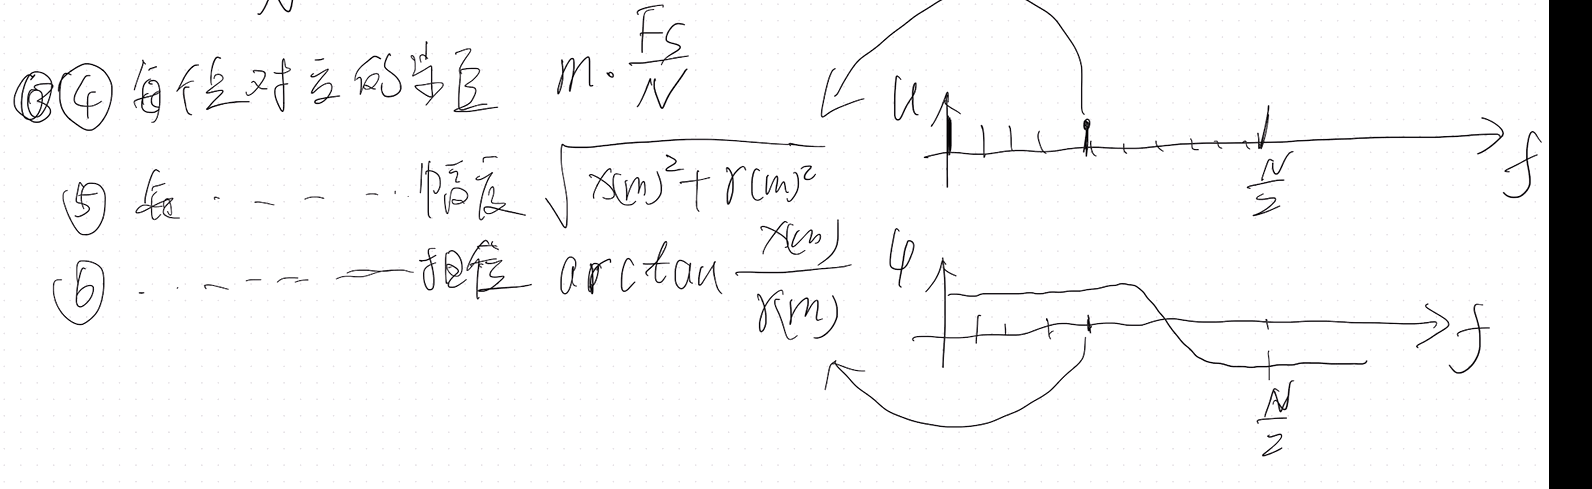 ④ 每位对应的
m · Fs/N
⑤ 每 · - - - · · 幅度 √(x(m)² + r(m)²)
⑥ · · - - - — 相位 arctan x(m)/r(m)
u
f
N/2
φ
f
N/2